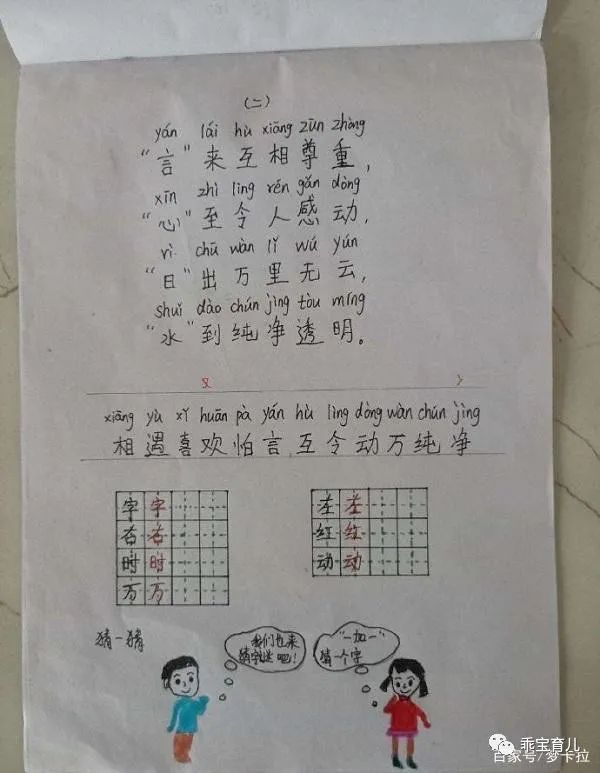 （二）
yán lái hù xiāng zūn zhòng
“言”来互相尊重，
xīn zhì lìng rén gǎn dòng
“心”至令人感动，
rì chū wàn lǐ wú yún
“日”出万里无云，
shuǐ dào chún jìng tòu míng
“水”到纯净透明。
xiāng yù xǐ huān pà yán hù lìng dòng wàn chún jìng
相遇喜欢怕言互令动万纯净
字字
左左
右右
红红
时时
动动
万万
猜一猜
我们也来
猜字谜吧！
“一加一”
猜一个字
乖宝育儿
百家号/梦卡拉